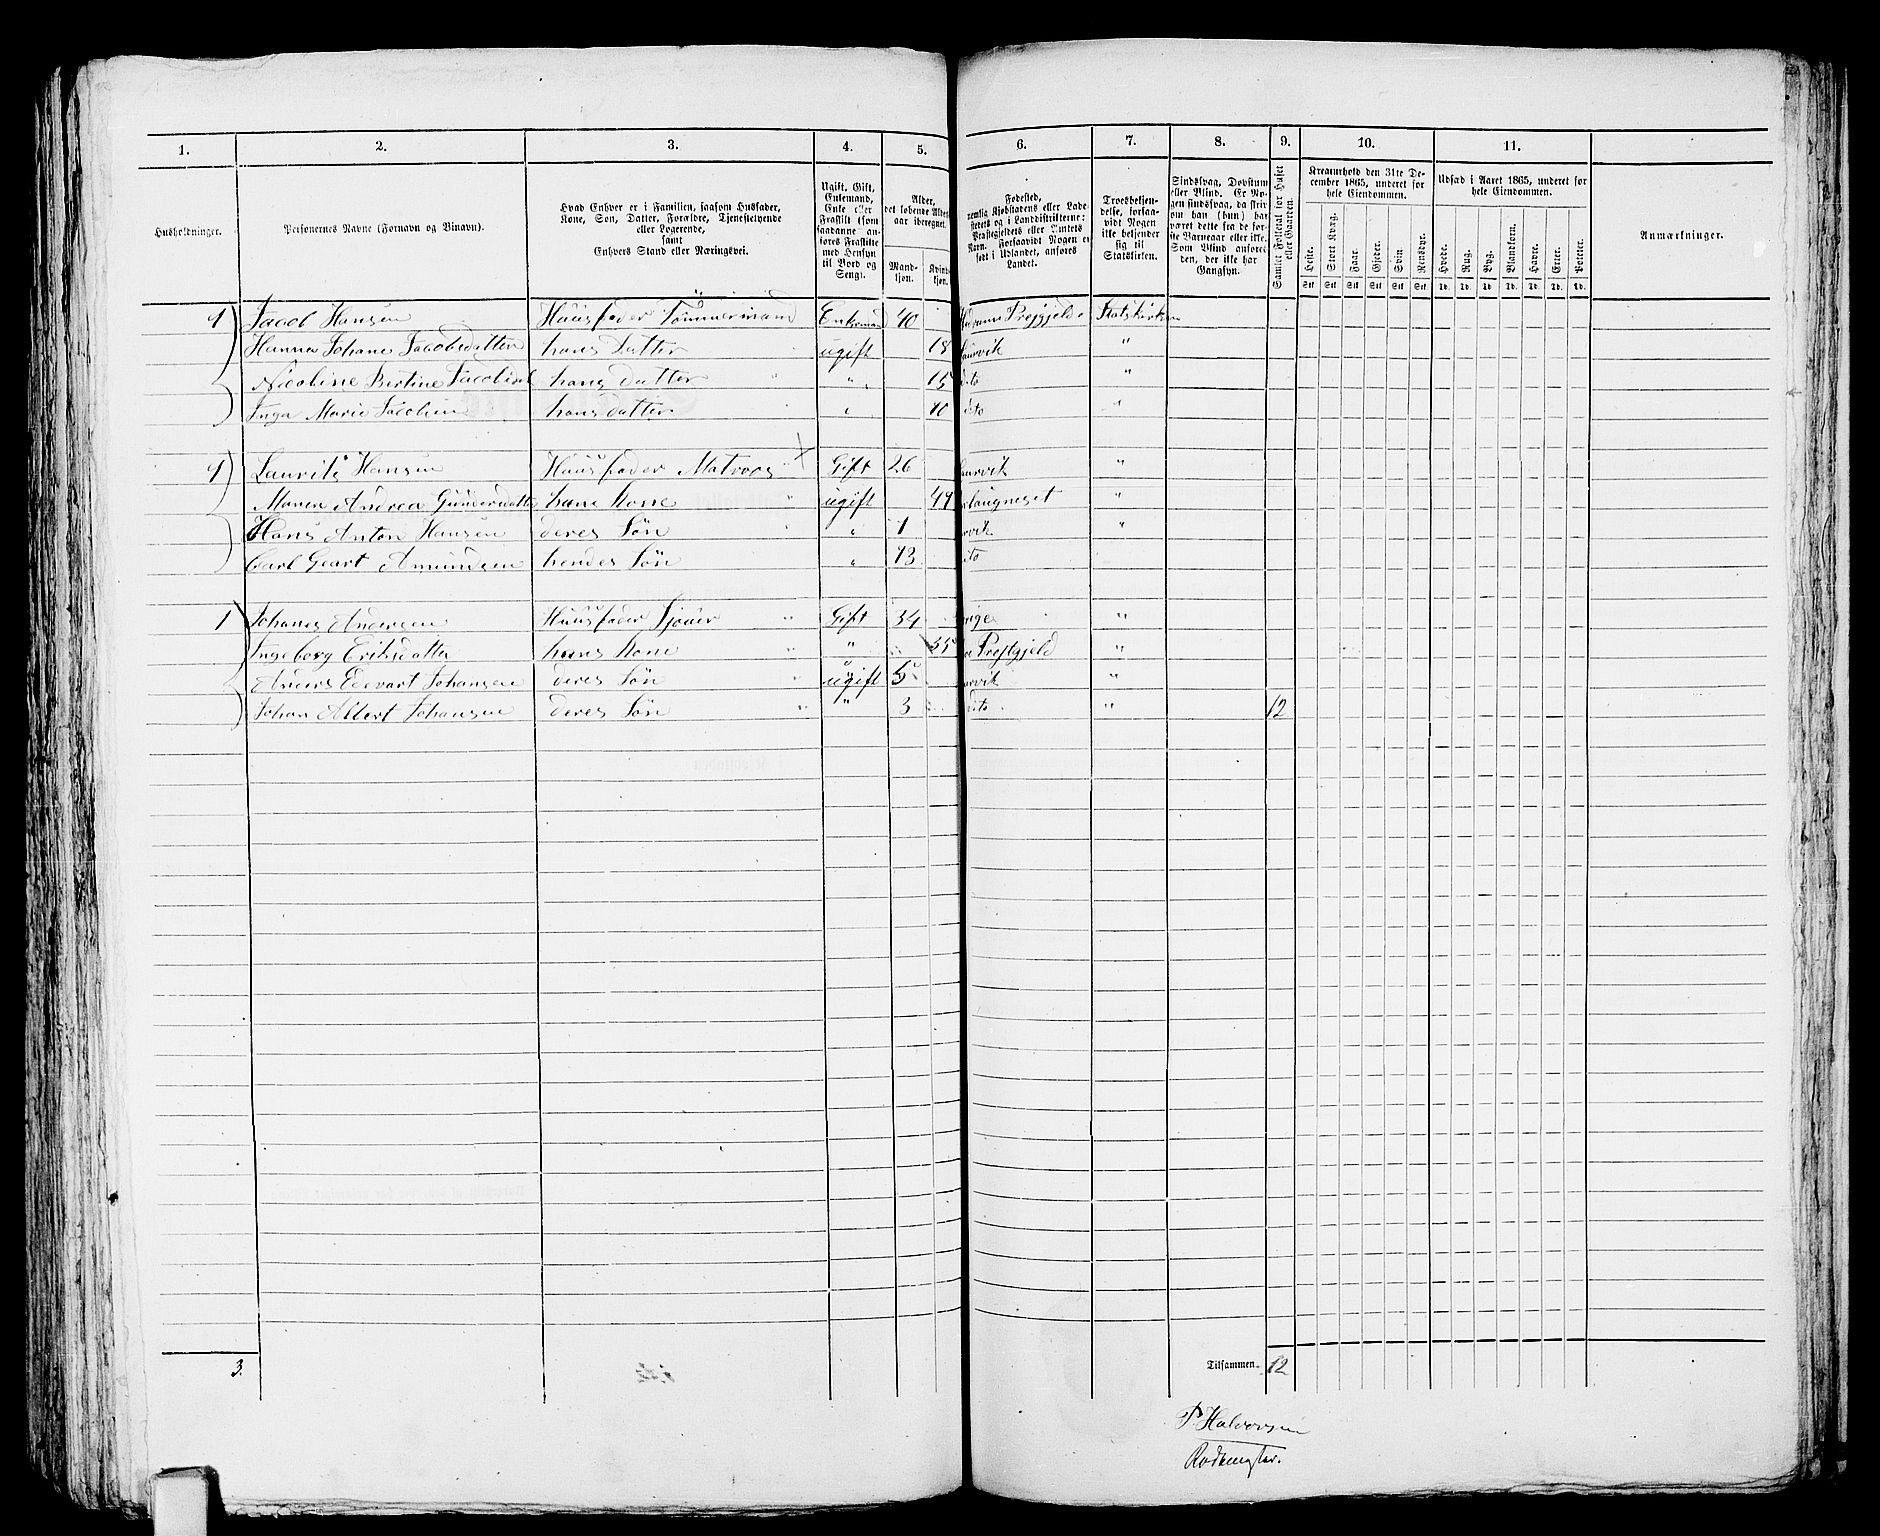 1. 2. 3. 4. 5. 6. 7. 8. 9. 10. 11.
Husholdninger.
Personernes Navne (Fornavn og Binavn).
Hvad Enhver er i Familien, saasom Husfader,
Kone, Søn, Datter, Forældre, Tjenestetyende
eller Logerende,
samt
Enhvers Stand eller Næringsvei.
Ugift, Gift,
Enkemand,
Enke eller
Fraskilt (som
saadanne an-
føres Fraskilte
med Hensyn
til Bord og
Seng).
Alder,
det løbende Alders-
aar iberegnet.
Mand-
kjøn.
Kvinde-
kjøn.
Fødested,
nemlig Kjøbstadens eller Lade-
stedets og i Landdistrikterne:
Præstegjeldets eller Sognets
Navn. Forsaavidt Nogen er
født i Udlandet, anføres
Landet.
Troesbekjen-
delse, forsaa-
vidt Nogen
ikke bekjender
sig til
Statskirken.
Sindssvag, Døvstum
eller Blind. Er No-
gen sindssvag, da skriv
om han (hun) har
været dette fra de før-
ste Barneaar eller ikke.
Som Blind anføres
den, der ikke har
Gangsyn.
Samlet Folketal for Huset
eller Gaarden.
Kreaturhold den 31te De-
cember 1865, underet for
hele Eiendommen.
Heste. Stort Kvæg. Faar. Gjeter. Svin. Rensdyr.
Stk Stk Stk Stk Stk Stk
Udsæd i Aaret 1865, underet for
hele Eiendommen.
Hvede. Rug. Byg. Blandkorn. Havre. Erter. Poteter.
Td. Td. Td. Td. Td. Td. Td.
Anmærkninger.
1 Jacob Hansen Huusfader Tømmermand Enkemand 40 Præstgjeld Statskirken
Hanna Johane Jacobsdatter hans Datter ugift 18 Laurvik "
Nicoline Bertine hans datter " 15 dito "
Inga Marie Jacobsen hans datter " 10 dito "
1 Lauritz Hansen Huusfader Matroos Gift 26 Laurvik "
Maren Andrea Gundersdatter hans Kone ugift 49 Langneset "
Hans Anton Hansen deres Søn " 1 Laurvik "
Carl Amundsen hendes Søn " 13 dito
1 Johanes Andersen Huusfader Sjouer " Gift 34 "
Ingeborg Eriksdatter hans Kone " " 35 Præstgjeld "
Anders Edevart Johansen deres Søn " ugift 5 Laurvik "
Johan Albert Johansen deres Søn " " 3 dito " 12
3. Tilsammen 12
P. Halvorsen
Rodemester.